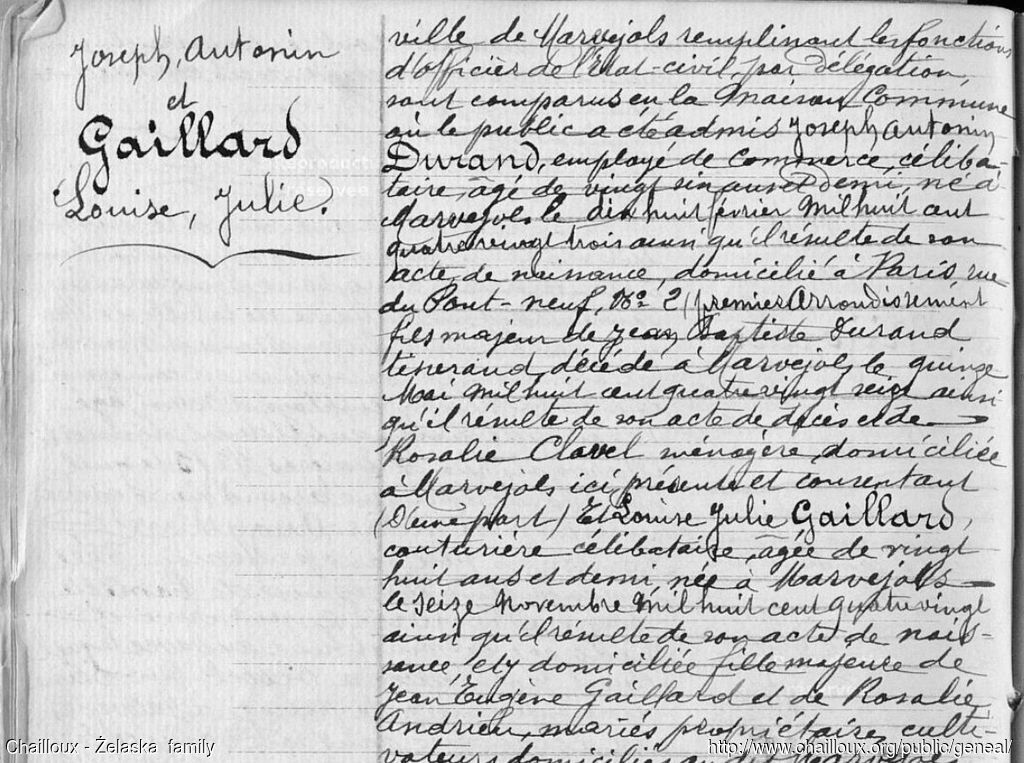 Joseph, Antonin
et
Gaillard
Louise, Julie.
ville de Marvejols remplissant les fonctions
d'officier de l'Etat-civil, par délégation,
sont comparus en la Maison Commune
où le public a été admis Joseph Antonin
Durand, employé de commerce, céliba-
taire, âgé de vingt six ans et demi, né à
Marvejols le dix huit février Mil huit cent
quatre vingt trois ainsi qu'il résulte de son
acte de naissance, domicilié à Paris rue
du Pont-neuf, No 2 (premier Arrondissement
fils majeur de Jean Baptiste Durand
décédé à Marvejols le quinze
Mai Mil huit cent quatre vingt seize ainsi
qu'il résulte de son acte de décès et de
Rosalie Clavel ménagère domiciliée
à Marvejols ici présente et consentant
(D'une part) Et Louise Julie Gaillard,
couturière célibataire, âgée de vingt
huit ans et demi née à Marvejols
le seize Novembre Mil huit cent quatre vingt
ainsi qu'il résulte de son acte de nais-
sance, et y domiciliée fille majeure de
Jean Eugène Gaillard et de Rosalie
Andrieu, mariés propriétaires culti-
vateurs domiciliés au dit Marvejols
Chailloux - Żelaska family
http://www.chailloux.org/public/geneal/